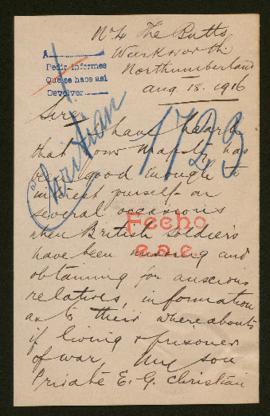 No 4 The Butts
Warkworth
Northumberland
Aug 18. 1916
A
Pedir informes
Que se haga así
Devolver
Christian
1723
Sir,
I have heard
that your Majesty has
been good enough to
interest yourself on
several occasions
when British Soldiers
have been missing and
obtaining for anxious
relatives, information
as to their whereabouts
if living & prisoner
of war, My son
Private E. G. Christian
Fecho